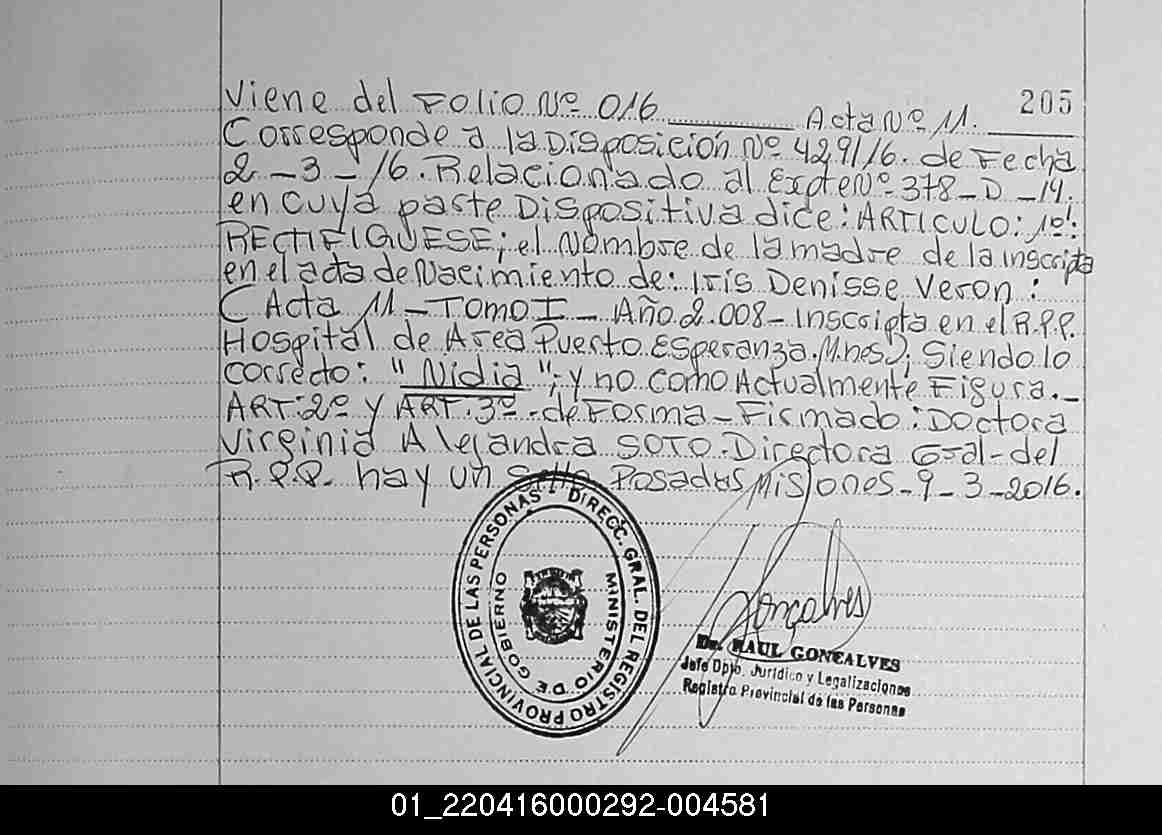 205
Viene del Folio Nº 016 Acta Nº 11.
Corresponde a la Disposición Nº 4291/6. de Fecha
2 - 3 - 16. Relacionado al Expte Nº 378 - D - 14.
en cuya parte Dispositiva dice: ARTICULO: 1º:
RECTIFIQUESE; el Nombre de la madre de la inscripta
en el acta de Nacimiento de: Iris Denisse Veron:
( Acta 11 - TOMO I - Año 2.008 - Inscripta en el R.P.P.
Hospital de Area Puerto Esperanza. Mnes); Siendo lo
correcto: "Nidia"; y no como Actualmente Figura. -
ART: 2º y ART. 3º - de Forma - Firmado: Doctora
Virginia Alejandra SOTO. Directora Gral - del
R.P.P. hay un sello Posadas Misiones - 9 - 3 - 2016.
DIRECC. GRAL. DEL REGISTRO PROVINCIAL DE LAS PERSONAS -
MINISTERIO DE GOBIERNO
Gonçalves
Dr. RAUL GONCALVES
Jefe Dpto. Jurídico y Legalizaciones
Registro Provincial de las Personas
01_220416000292-004581